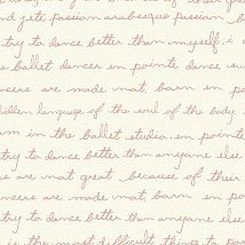 of their
jeté passion arabesque passion
try to dance better than myself, i
ballet dancer en pointe dance
are made not, born en
language of the soul of the body
in the ballet studio en pointe
try to dance better than anyone else
not great because of their
dancers are made not, born en
try to dance better than anyone else
is the most difficult thing to